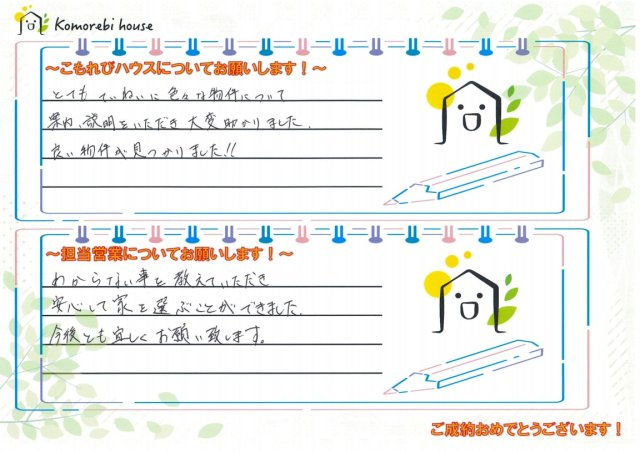 Komorebi house
～こもれびハウスについてお願いします！～
とても ていねいに 色々な物件について
案内、説明をいただき 大変助かりました。
良い物件が見つかりました!!
～担当営業についてお願いします！～
わからない事を 教えていただき
安心して 家を 選ぶことができました。
今後とも宜しくお願い致します。
ご成約おめでとうございます！